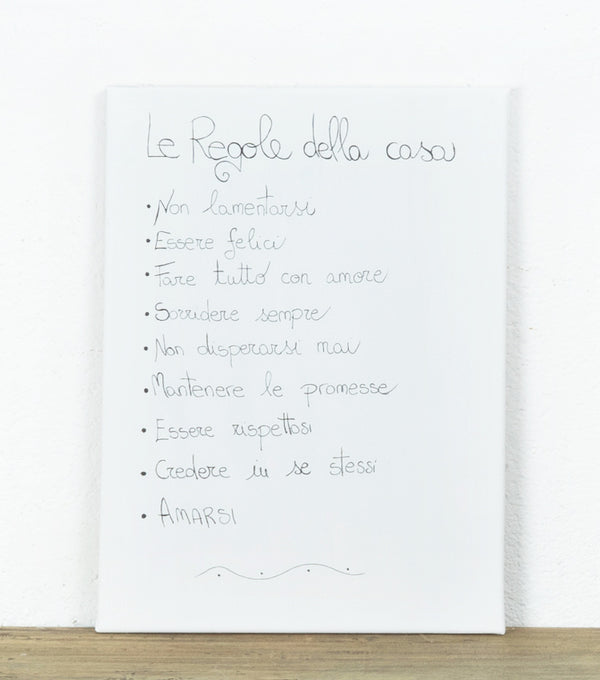 Le Regole della casa
• Non lamentarsi
• Essere felici
• Fare tutto con amore
• Sorridere sempre
• Non disperarsi mai
• Mantenere le promesse
• Essere rispettosi
• Credere in se stessi
• AMARSI